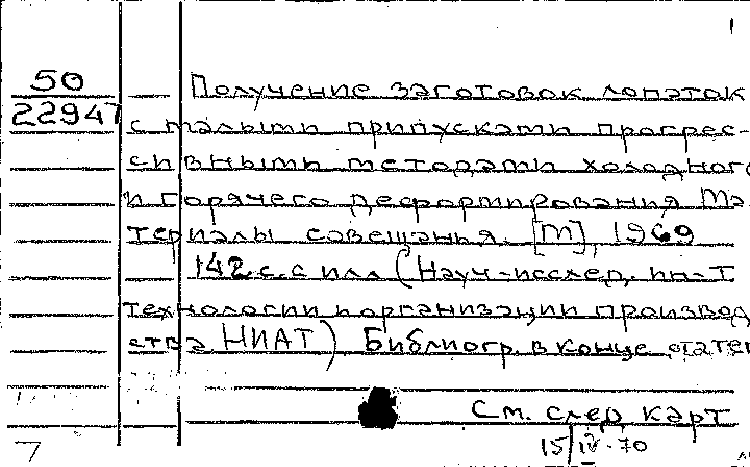 1
50 Получение заготовок лопаток
22947 с малыми припусками прогрес-
сивными методами холодного
и горячего деформирования Ма
териалы совещания. [М], 1969
142 с. с илл (Науч-исслед. ин-т
технологии и организации производ
ства НИАТ) Библиогр. в конце статей
См. след карт
7 15/IV-70